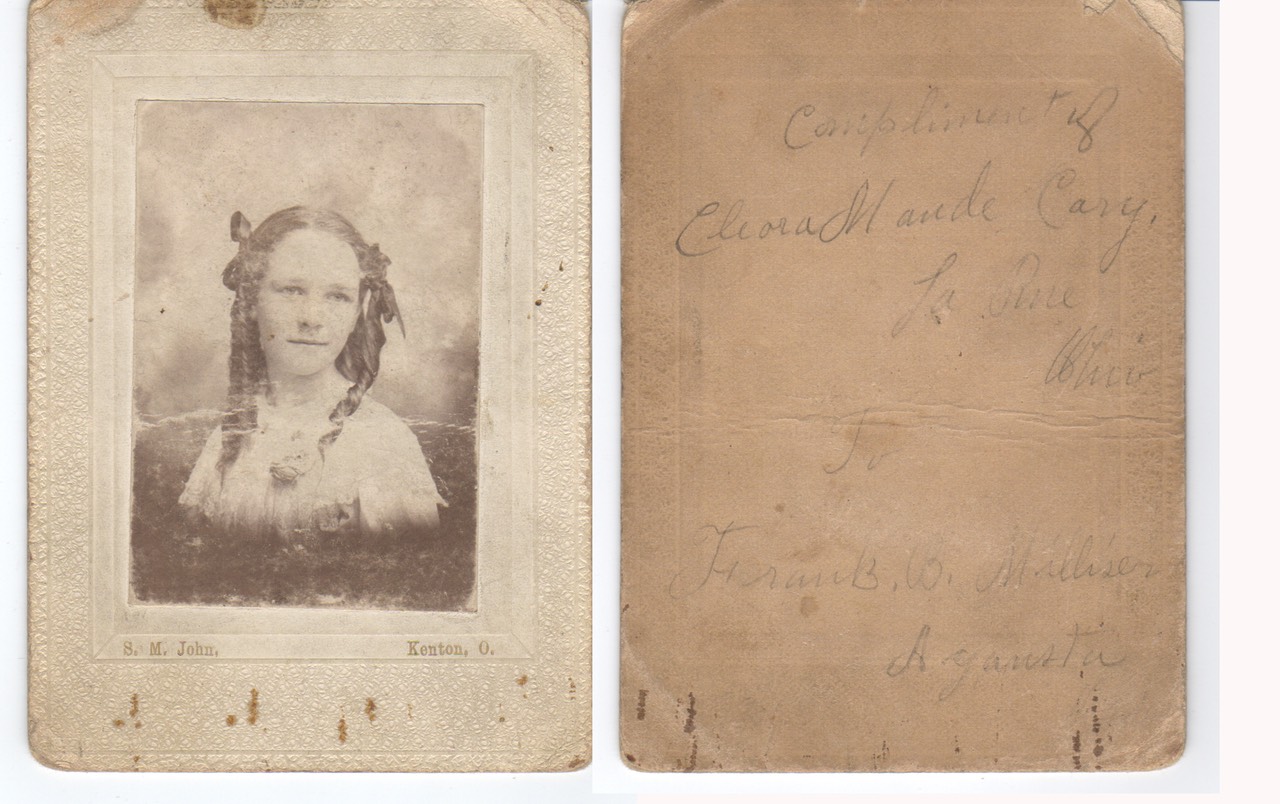 S. M. John,
Kenton, O.
Compliment of
Cleora Maude Cary,
La Rue
Ohio
To
Frank. B. Milliser
Agansta